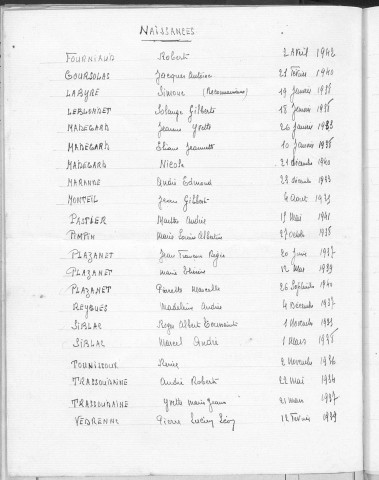 NAISSANCES
FOURNIAUD Robert 2 Avril 1942
GOURSOLAS Jacques Antoine 21 Février 1940
LABYRE Simone (Reconnaissance) 19 Janvier 1935
LEBLONNET Solange Gilberte 18 Janvier 1935
MADEGARD Jeanne Yvette 26 Janvier
MADEGARD Eliane Jeannette 10 Janvier 1935
MADEGARD Nicole 21 décembre 1940
MARANDE André Edmond 23 décembre 1933
MONTEIL Jean Gilbert 4 Août
Marthe Andrée 1er Mai 1941
PIMPIN Marie Louise Albertine 27 Octobre 1935
PLAZANET Jean François Régis 20 Juin 1937
PLAZANET Marie Thérèse 12 Mai 1939
PLAZANET Pierrette Marcelle 26 Septembre 1940
REYGUES Madeleine Andrée 4 Décembre 1937
SIBLAC Roger Albert 1 Novembre 1933
SIBLAC Marcel André 1 Mars 1935
TOUNISSOUX René 2 Novembre 1934
TRASSOUDAINE André Robert 22 Mai 1934
TRASSOUDAINE Yvette Marie Jeanne 21 Mars 1937
VEDRENNE Pierre Lucien Léon 12 Février 1939